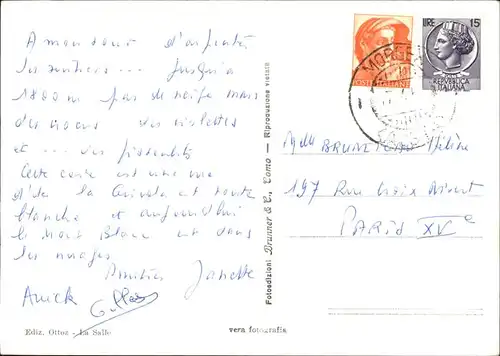 A mon tour d'arpenter
les sentiers ... Jusqu'à
1800 m pas de neige mais
des violettes
et ... des pissenlits
Cette carte est une vue
de la est toute
blanche et aujourd'hui
le Mont Blanc est dans
les nuages
Amitiés Janette
Anick Gilles
Ediz. Ottoz - La Salle
vera fotografia
Fotoedizioni Brunner & C., Como - Riproduzione vietata
POSTE ITALIANE
LIRE 15
REPUBBLICA
ITALIANA
MORGEX
Melle BRUNETEAU Hélène
197 Rue Croix Nivert
PARIS XVe